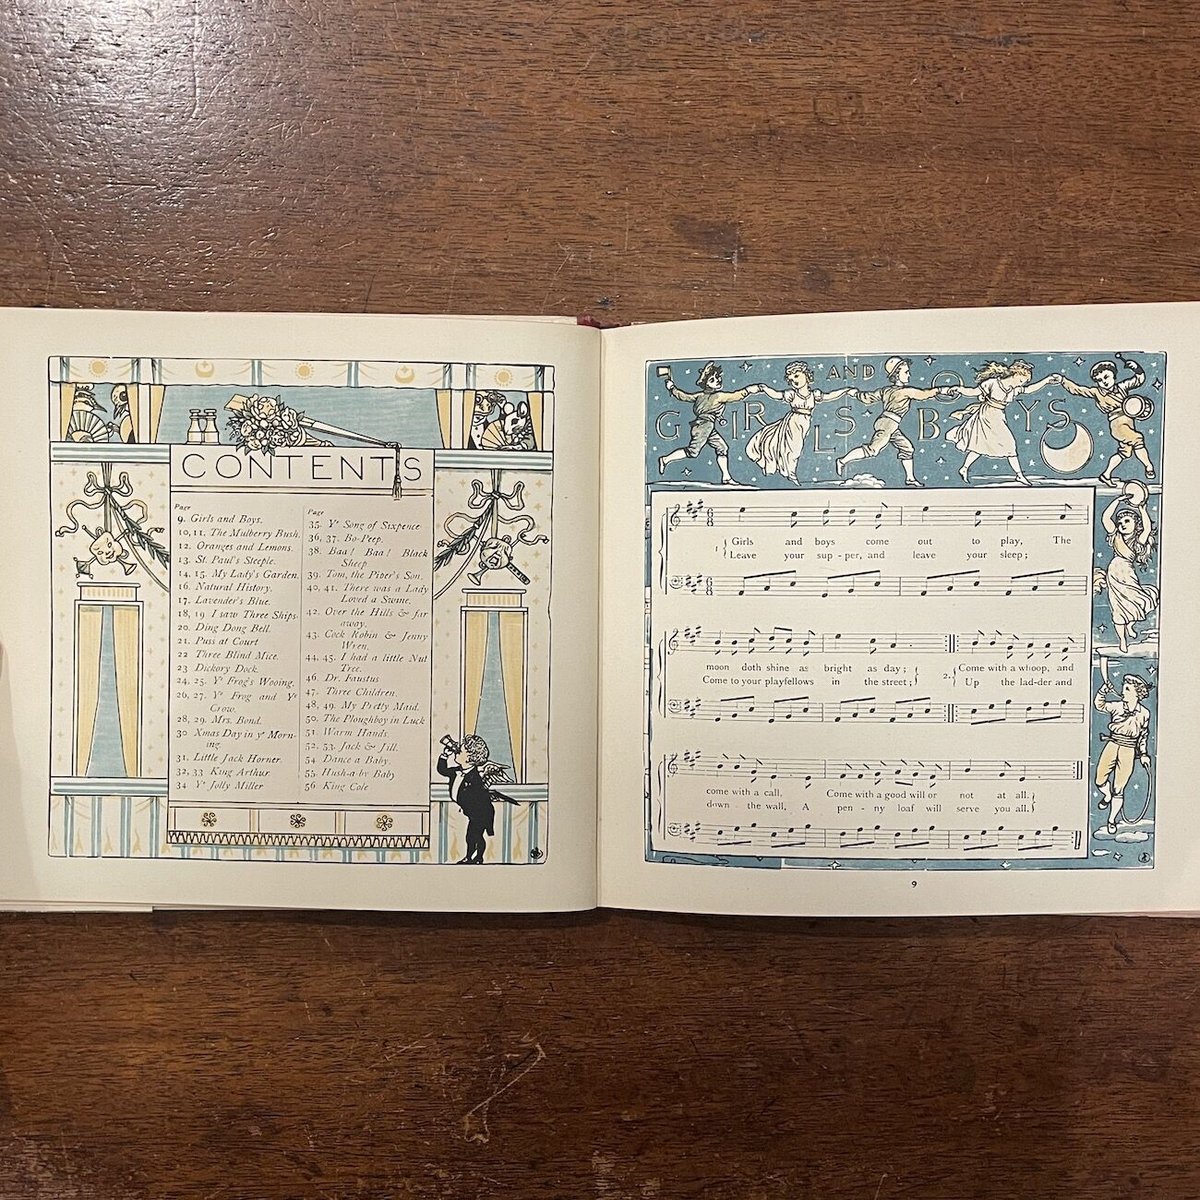 CONTENTS
Page
9. Girls and Boys.
10, 11. The Mulberry Bush.
12. Oranges and Lemons.
13. St. Paul's Steeple.
14, 15. My Lady's Garden.
16. Natural History.
17. Lavender's Blue.
18, 19 I saw Three Ships.
20. Ding Dong Bell.
21. Puss at Court
22 Three Blind Mice.
23 Dickory Dock.
24, 25. Yᵉ Frog's Wooing.
26, 27. Yᵉ Frog and Yᵉ
Crow.
28, 29. Mrs. Bond.
30 Xmas Day in yᵉ Morn-
ing.
31. Little Jack Horner.
32, 33 King Arthur
34 Yᵉ Jolly Miller
Page
35. Yᵉ Song of Sixpence
36, 37. Bo-Peep.
38. Baa! Baa! Black
Sheep
39. Tom, the Piper's Son.
40, 41. There was a Lady
Loved a Swine.
42. Over the Hills & far
away.
43. Cock Robin & Jenny
Wren.
44, 45. I had a little Nut
Tree.
46. Dr. Faustus
47. Three Children.
48, 49. My Pretty Maid.
50. The Ploughboy in Luck
51. Warm Hands.
52, 53. Jack & Jill.
54. Dance a Baby.
55. Hush-a-by Baby
56 King Cole
GIRLS AND BOYS
1. Girls and boys come out to play, The
Leave your sup-per, and leave your sleep;
moon doth shine as bright as day; 2. Come with a whoop, and
Come to your playfellows in the street; Up the lad-der and
come with a call, Come with a good will or not at all.
down the wall, A pen-ny loaf will serve you all.
9